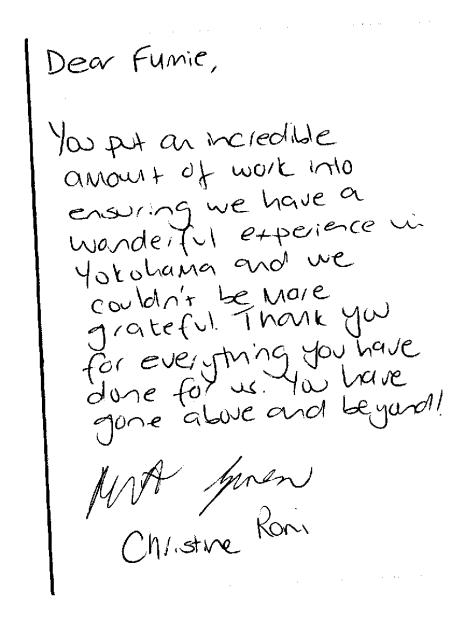 Dear Fumie,
You put an incredible
amount of work into
ensuring we have a
wonderful experience in
Yokohama and we
couldn't be more
grateful. Thank you
for everything you have
done for us. You have
gone above and beyond!
Christine Roni